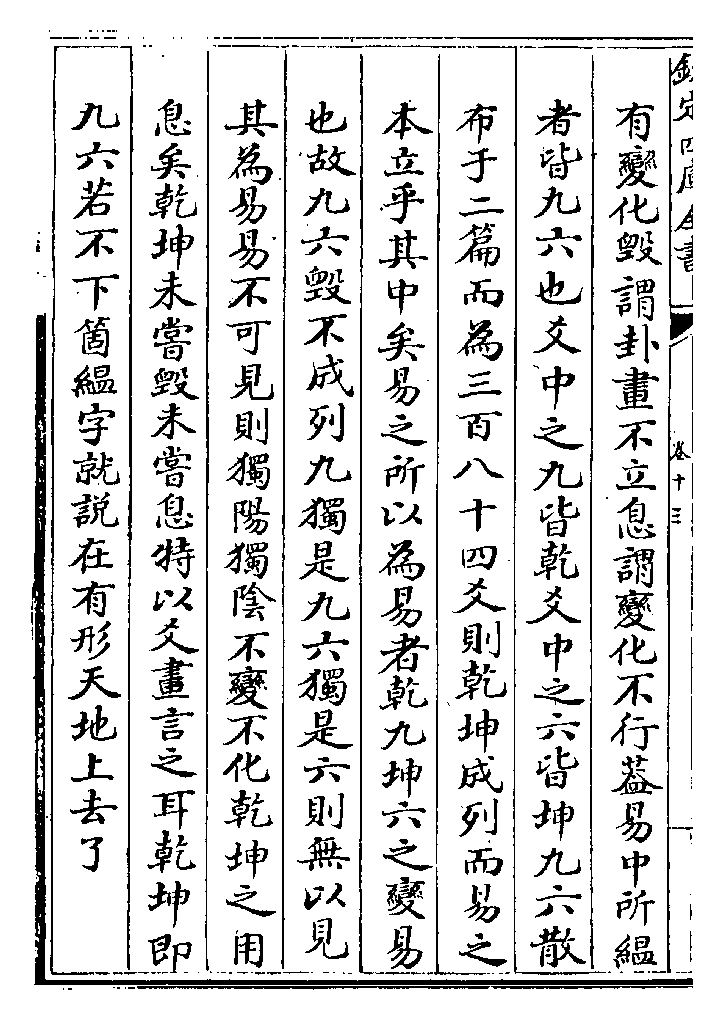 欽定四庫全書
卷十三
有變化毁謂卦畫不立息謂變化不行葢易中所緼
者皆九六也爻中之九皆乾爻中之六皆坤九六散
布于二篇而為三百八十四爻則乾坤成列而易之
本立乎其中矣易之所以為易者乾九坤六之變易
也故九六毁不成列九獨是九六獨是六則無以見
其為易易不可見則獨陽獨隂不變不化乾坤之用
息矣乾坤未嘗毁未嘗息特以爻畫言之耳乾坤即
九六若不下箇緼字就説在有形天地上去了